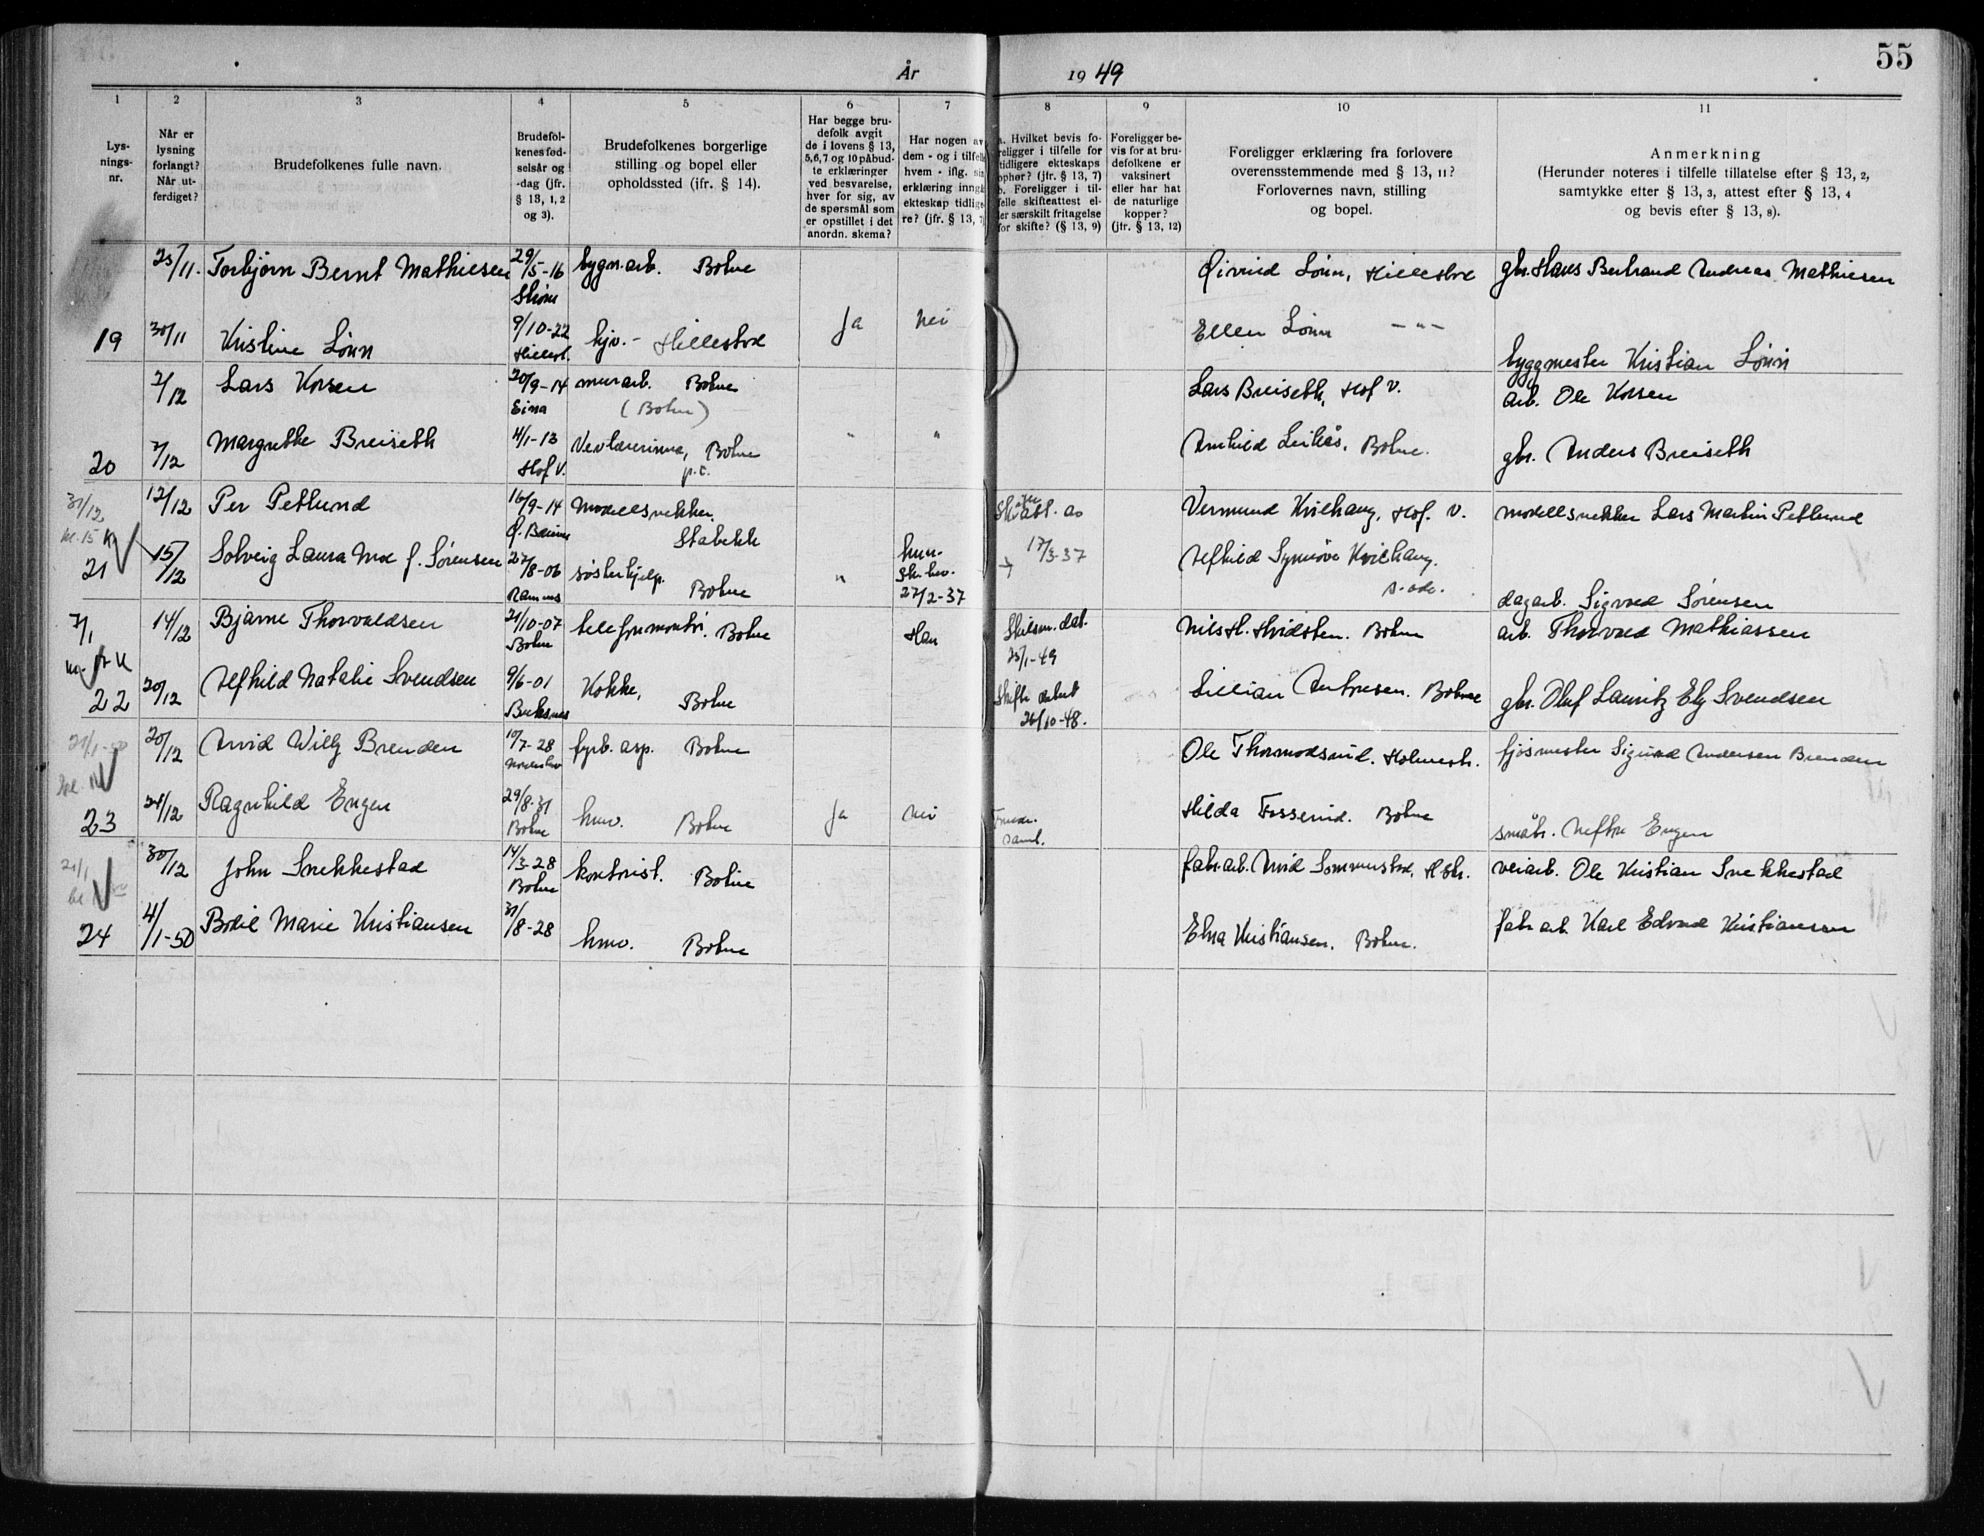 55
År 1949
1 2 3 4 5 6 7 8 9 10 11
Lys-
nings-
nr.
Når er
lysning
forlangt?
Når ut-
ferdiget?
Brudefolkenes fulle navn.
Brudefol-
kenes fød-
selsår og
-dag (jfr.
§ 13, 1, 2
og 3).
Brudefolkenes borgerlige
stilling og bopel eller
opholdssted (jfr. § 14).
Har begge bru-
defolk avgit
de i lovens § 13,
5,6,7 og 10 påbud-
te erklæringer
ved besvarelse,
hver for sig, av
de spørsmål som
er opstillet i det
anordn. skema?
Har nogen av
dem - og i tilfelle
hvem - iflg. sin
erklæring inngå
ekteskap tidlige-
re? (jfr. § 13, 7
a. Hvilket bevis fo-
religger i tilfelle for
tidligere ekteskaps
ophør? (jfr. § 13, 7)
b. Foreligger i til-
felle skifteattest el-
ler særskilt fritagelse
for skifte? (§ 13, 9)
Foreligger be-
vis for at bru-
defolkene er
vaksinert
eller har hat
de naturlige
kopper?
(jfr. § 13, 12)
Foreligger erklæring fra forlovere
overensstemmende med § 13, 11?
Forlovernes navn, stilling
og bopel.
Anmerkning
(Herunder noteres i tilfelle tillatelse efter § 13, 2,
samtykke efter § 13, 3, attest efter § 13, 4
og bevis efter § 13, 8).
25/11. Torbjørn Bernt Mathiesen 29/5-16 bygn.arb. Botne Øivind Lønn, Hillestad gbr. Hans Bertrand Andreas Mathiesen
19 30/11 Kristine Lønn 9/10-22 Hillest. hjv. - Hillestad Ja nei Ellen Lønn -"- byggmester Kristian Lønn
2/12 Lars Korsen 20/9-14 Eina murarb. Botne Lars Breiseth, Hof V. arb. Ole Korsen
(Botne)
20 7/12 Margrethe Breiseth 4/1-13 Hof V. Vevlærerinne, Botne p.t. " " Botne. gbr. Anders Breiseth
31/12 kl. 15
12/12 Per Petlund 16/9-14 Ø. Bærum modellsnekker, Stabekk Vermund Kvilhaug, Hof. V. modellsnekker Lars Martin Petlund
21 15/12 Solveig Laura Moe f. Sørensen 27/8-06 Ramnes søsterhjelp. Botne " hun. 27/2-37 17/3-37 Alfhild Synnøve Kvilhaug. s. ads. dagarb. Sigvard Sørensen
7/1
14/12 Bjarne Thorvaldsen 21/10-07 Botne telefonmontør. Botne Han Skilsm. dat. 25/1-49 Nils H. Hvidsten. Botne arb. Thorvald Mathiassen
22 20/12 Alfhild Natalie Svendsen 9/6-01 Buksnes Kokke, Botne Skifte datert 26/10-48. Lillian Antonsen. Botne gbr. Oluf Lauritz Ely Svendsen
21/1-50
20/12 Arvid Willy Brenden 10/7-28 fyrb. asp. Botne Ole Thormodsrud. Holmestr. fjøsmester Sigurd Andersen Brenden
23 24/12 Ragnhild Engen 29/8-31 Botne hmv. Botne Ja nei Hilda Fosserud. Botne småbr. Engen
21/1
30/12 John Snekkestad 14/3-28 Botne kontorist. Botne fabr.arb. Arvid Sommerstad, Hstr. veiarb. Ole Kristian Snekkestad
24 4/1-50 Bodil Marie Kristiansen 31/8-28 hmv. Botne Elna Kristiansen. Botne. fabr.arb. Karl Edvard Kristiansen